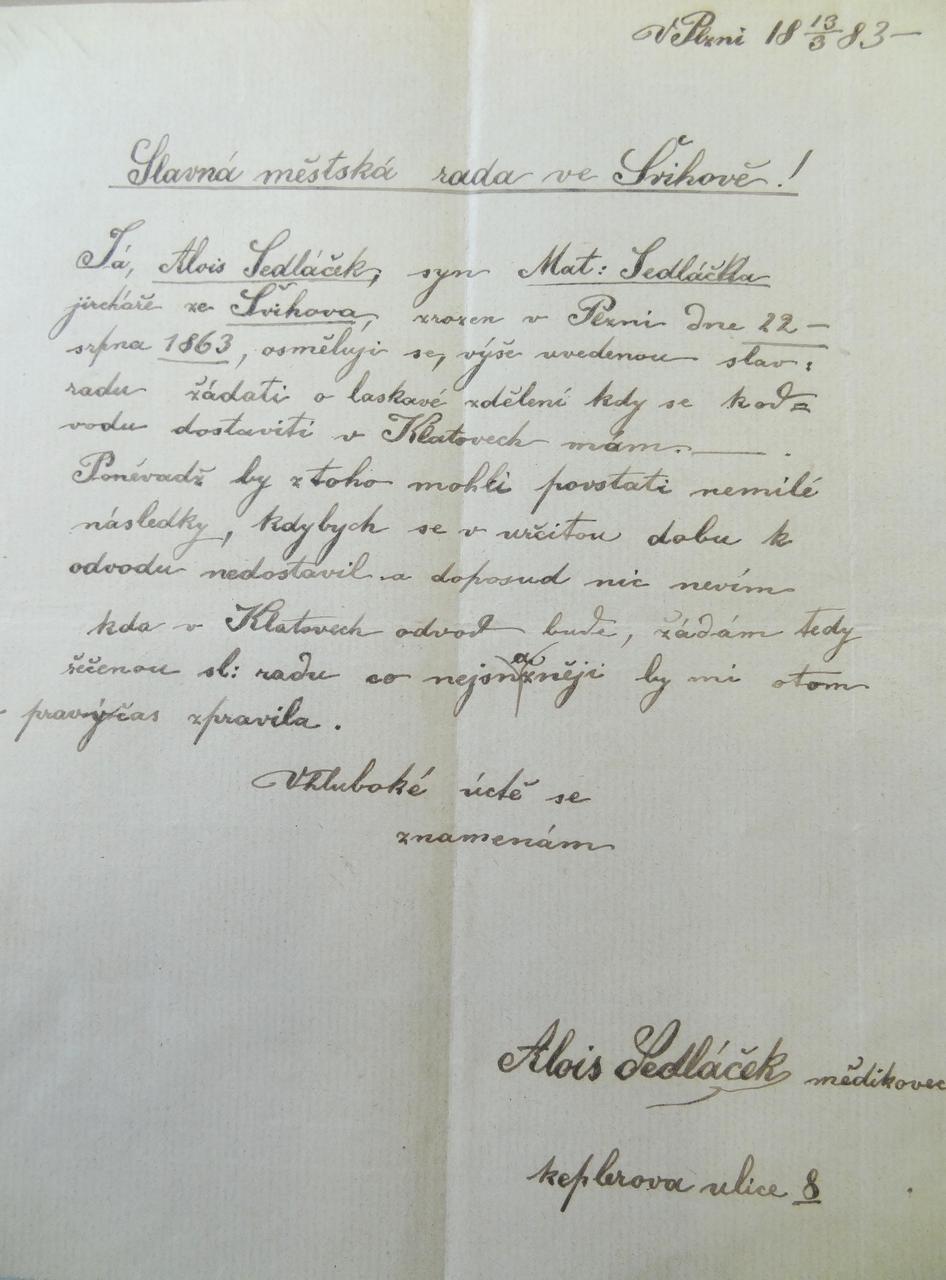 V Plzni 18 13/3 83 —
Slavná městská rada ve Švihově!
Já, Alois Sedláček, syn Mat: Sedláčka
jircháře ze Švihova, zrozen v Plzni dne 22 —
srpna 1863, osměluji se, výše uvedenou slav:
radu žádati o laskavé zdělení kdy se k od=
vodu dostaviti v Klatovech mám. — .
Poněvadž by z toho mohli povstati nemilé
následky, kdybych se v určitou dobu k
odvodu nedostavil a doposud nic nevím
kda v Klatovech odvod bude, žádám tedy
řečenou sl: radu co nejsnažněji by mi otom
pravýčas zpravila.
V hluboké úctě se
znamenám
Alois Sedláček mědikovec
keplerova ulice 8